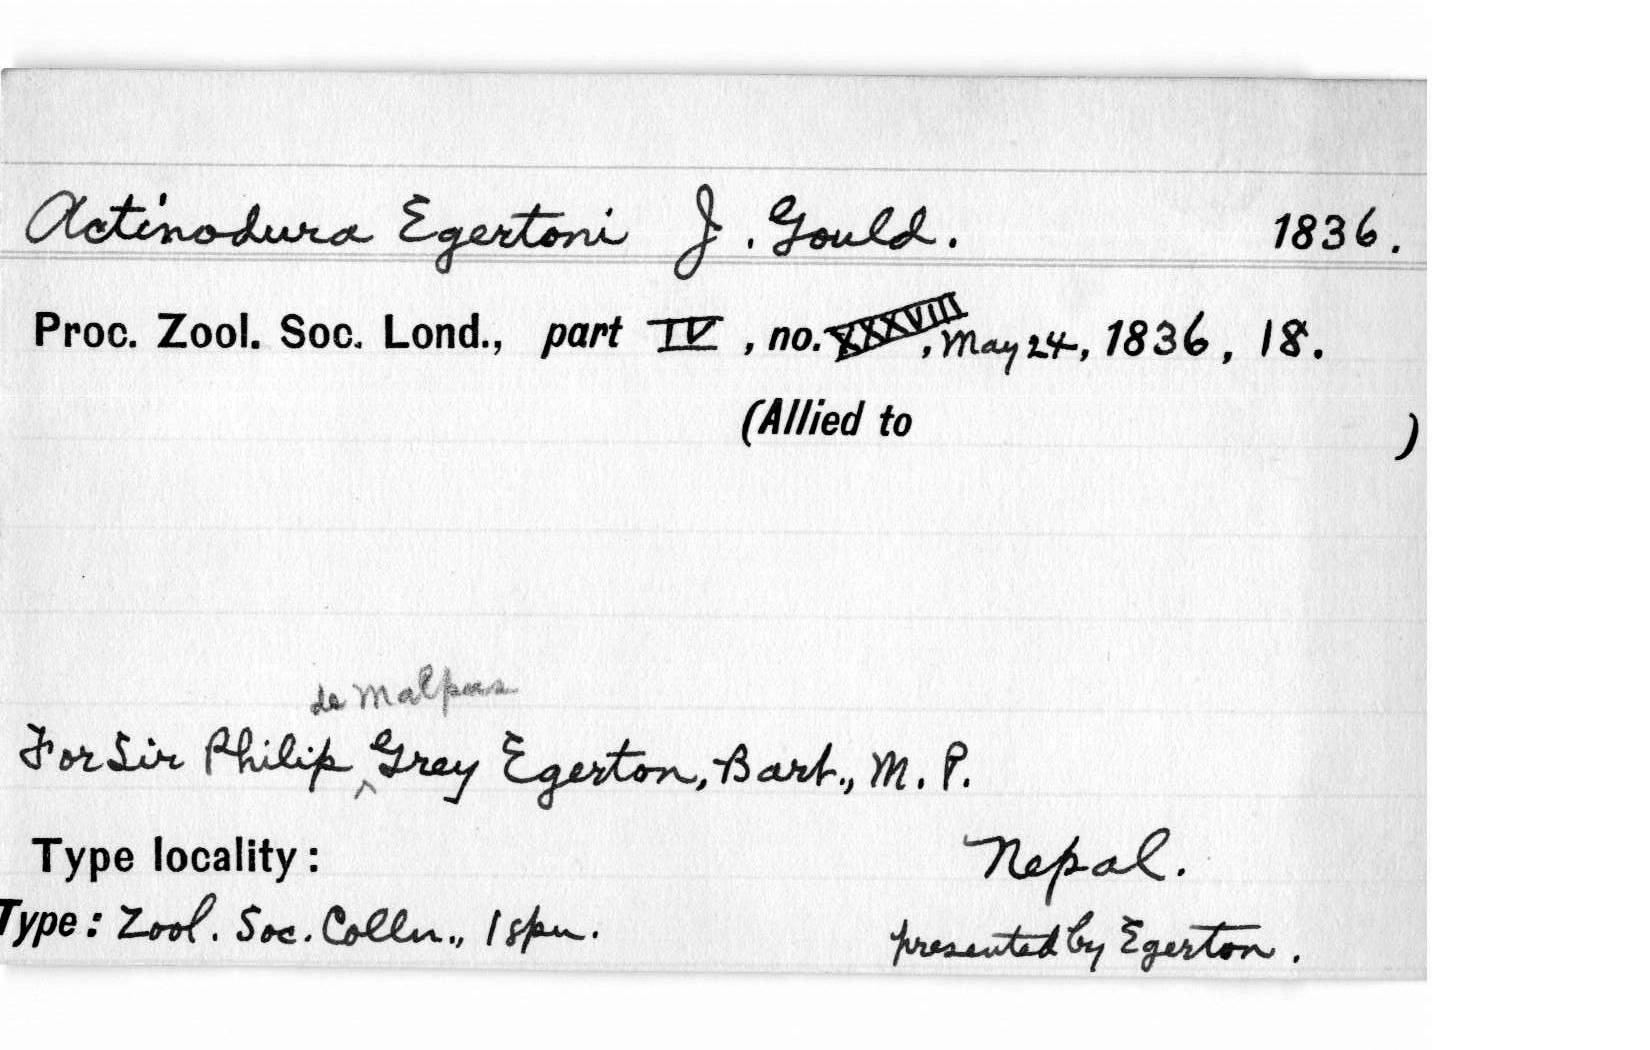 Actinodura Egertoni J. Gould. 1836.
Proc. Zool. Soc. Lond., part IV, no. XXXVIII, May 24, 1836, 18.
(Allied to )
de Malpas
For Sir Philip ^ Grey Egerton, Bart., M.P.
Type locality: Nepal.
Type: Zool. Soc. Colln., 1 spn. presented by Egerton.